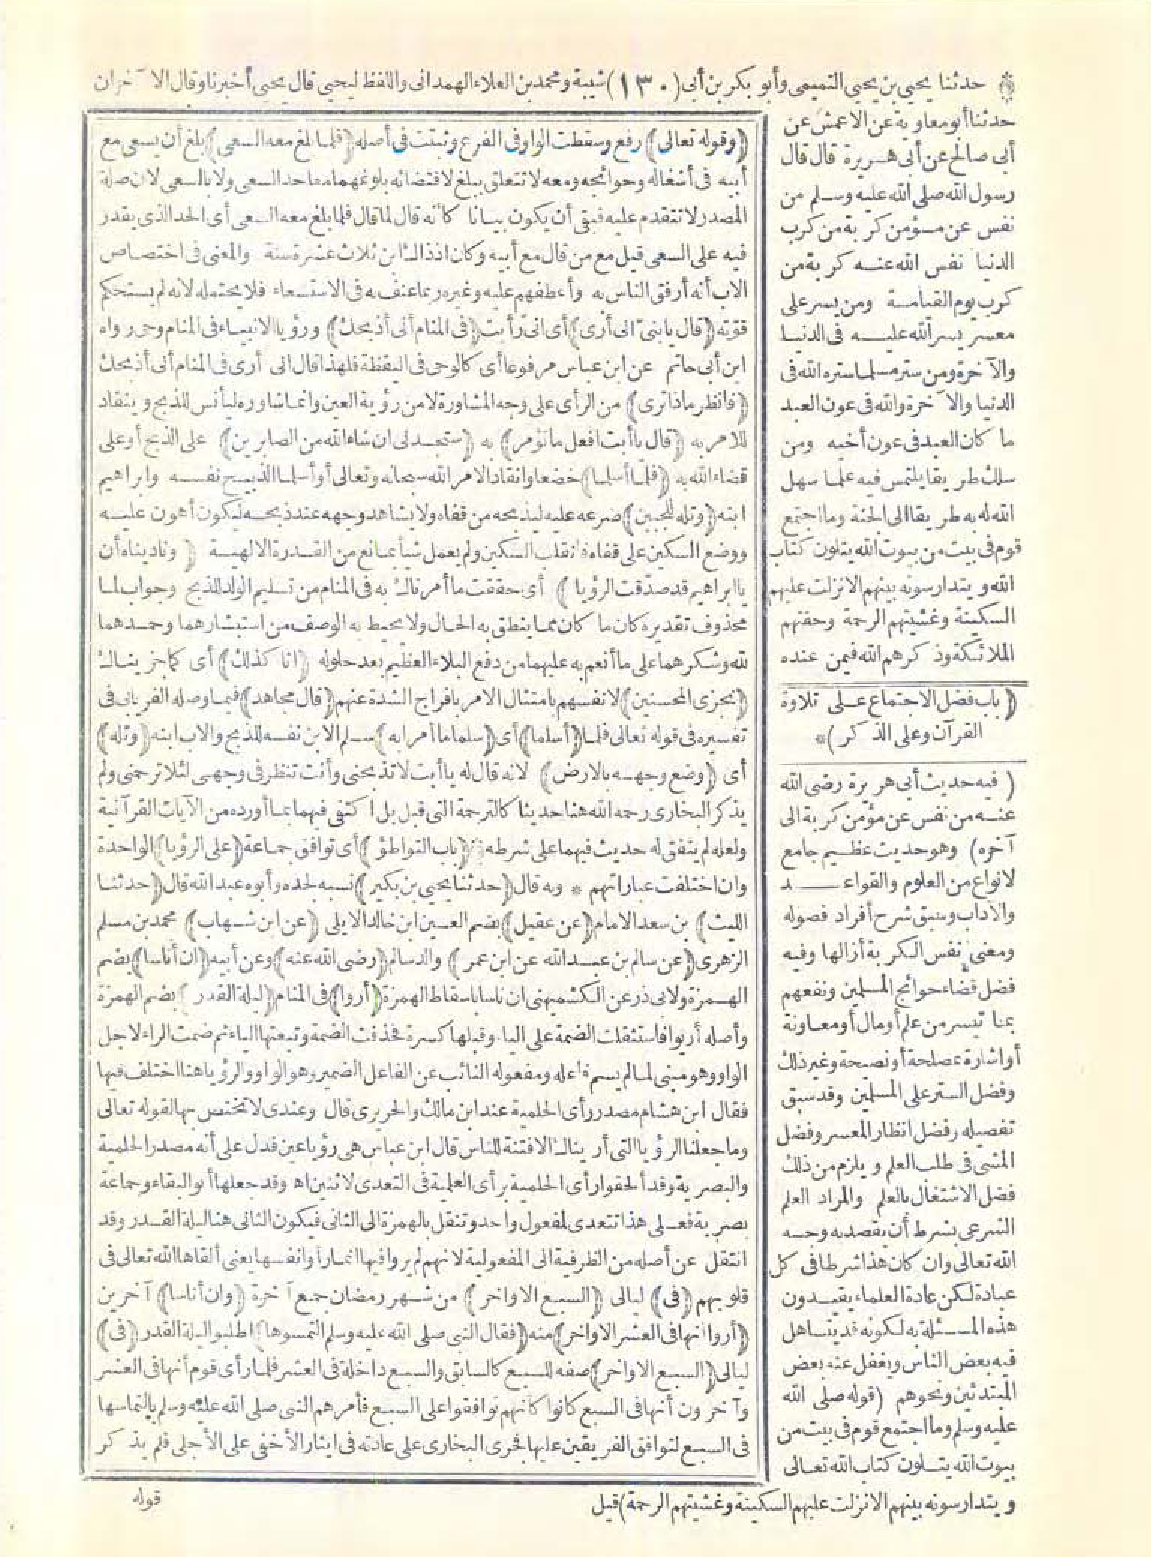 حدثنا يحيى بن يحيى التميمى وأبو بكر بن أبى (١٣٠) شيبة ومحمد بن العلاء الهمدانى واللفظ ليحيى قال يحيى أخبرنا وقال الآخران
حدثنا أبو معاوية عن الاعمش عن
أبى صالح عن أبى هريرة قال قال
رسول الله صلى الله عليه وسلم من
نفس عن مؤمن كربة من كرب
الدنيا نفس الله عنه كربة من
كرب يوم القيامة ومن يسر على
معسر يسر الله عليه فى الدنيا
والآخرة ومن ستر مسلما ستره الله فى
الدنيا والآخرة والله فى عون العبد
ما كان العبد فى عون أخيه ومن
سلك طريقا يلتمس فيه علما سهل
الله له به طريقا الى الجنة وما اجتمع
قوم فى بيت من بيوت الله يتلون كتاب
الله ويتدارسونه بينهم الا نزلت عليهم
السكينة وغشيتهم الرحمة وحفتهم
الملائكة وذكرهم الله فيمن عنده
(باب فضل الاجتماع على تلاوة
القرآن وعلى الذكر)*
(فيه حديث أبى هريرة رضى الله
عنه من نفس عن مؤمن كربة الى
آخره) وهو حديث عظيم جامع
لانواع من العلوم والقواعد
والآداب وسبق شرح أفراد فصوله
ومعنى نفس الكربة أزالها وفيه
فضل قضاء حوائج المسلمين ونفعهم
بما تيسر من علم أو مال أو معاونة
أو اشارة بمصلحة أو نصيحة وغير ذلك
وفضل الستر على المسلمين وقد سبق
تفصيله وفضل انظار المعسر وفضل
المشى فى طلب العلم ويلزم من ذلك
فضل الاشتغال بالعلم والمراد العلم
الشرعى بشرط أن يقصد به وجه
الله تعالى وان كان هذا شرطا فى كل
عبادة لكن عادة العلماء يقيدون
هذه المسئلة به لكونه قد يتساهل
فيه بعض الناس ويغفل عنه بعض
المبتدئين ونحوهم (قوله صلى الله
عليه وسلم وما اجتمع قوم فى بيت من
بيوت الله يتلون كتاب الله تعالى
ويتدارسونه بينهم الا نزلت عليهم السكينة وغشيتهم الرحمة) قيل
(وقوله تعالى) رفع وسقطت الواو فى الفرع وثبتت فى أصله (فلما بلغ معه السعى) بلغ أن يسعى مع
أبيه فى أشغاله وحوائجه ومعه لا تتعلق ببلغ لاقتضائه بلوغهما معا حد السعى ولا بالسعى لان صلة
المصدر لا تتقدم عليه فبقى أن يكون بيانا كأنه قال لما قال فلما بلغ معه السعى أى الحد الذى يقدر
فيه على السعى قيل مع من قال مع أبيه وكان اذ ذاك ابن ثلاث عشرة سنة والمعنى فى اختصاص
الاب أنه أرفق الناس به وأعطفهم عليه وغيره ربما عنف به فى الاستسعاء فلا يحتمله لانه لم يستحكم
قوته (قال يا بنى انى أرى) أى انى رأيت (فى المنام أنى أذبحك) ورؤيا الانبياء فى المنام وحى رواه
ابن أبى حاتم عن ابن عباس مرفوعا أى كالوحى فى اليقظة فلهذا قال انى أرى فى المنام أنى أذبحك
(فانظر ماذا ترى) من الرأى على وجه المشاورة لا من رؤية العين وانما شاوره ليأنس للذبح وينقاد
للامر به (قال يا أبت افعل ما تؤمر) به (ستجدنى ان شاء الله من الصابرين) على الذبح أو على
قضاء الله به (فلما أسلما) خضعا وانقادا لامر الله سبحانه وتعالى أو أسلما الذبيح نفسه وابراهيم
ابنه (وتله للجبين) صرعه عليه ليذبحه من قفاه ولا يشاهد وجهه عند ذبحه ليكون أهون عليه
ووضع السكين على قفاه فانقلب السكين ولم يعمل شيأ بمانع من القدرة الالهية (وناديناه أن
يا ابراهيم قد صدقت الرؤيا) أى حققت ما أمرناك به فى المنام من تسليم الولد للذبح وجواب لما
محذوف تقديره كان ما كان مما ينطق به الحال ولا يحيط به الوصف من استبشارهما وحمدهما
لله وشكرهما على ما أنعم به عليهما من دفع البلاء العظيم بعد حلوله (انا كذلك) أى كما جزيناك
(نجزى المحسنين) لانفسهم بامتثال الامر بافراج الشدة عنهم (قال مجاهد) فيما وصله الفريابى فى
تفسيره فى قوله تعالى فلما (أسلما) أى (سلما ما أمرا به) سلم الابن نفسه للذبح والاب ابنه (وتله)
أى (وضع وجهه بالارض) لانه قال له يا أبت لا تذبحنى وأنت تنظر فى وجهى لئلا ترحمنى ولم
يذكر البخارى رحمه الله هنا حديثا كالترجمة التى قبل بل اكتفى فيهما بما أورده من الآيات القرآنية
ولعله لم يتفق له حديث فيهما على شرطه (باب التواطؤ) أى توافق جماعة (على الرؤيا) الواحدة
وان اختلفت عباراتهم * وبه قال (حدثنا يحيى بن بكير) نسبه لجده وأبوه عبد الله قال (حدثنا
الليث) بن سعد الامام (عن عقيل) بضم العين ابن خالد الايلى (عن ابن شهاب) محمد بن مسلم
الزهرى (عن سالم بن عبد الله عن ابن عمر) والد سالم (رضى الله عنه) وعن أبيه (ان أناسا) بضم
الهمزة ولابى ذر عن الكشميهنى ان ناسا باسقاط الهمزة (أروا) فى المنام (ليلة القدر) بضم الهمزة
وأصله أريوا فاستثقلت الضمة على الياء وقبلها كسرة فحذفت الضمة وتبعتها الياء ثم ضمت الراء لاجل
الواو وهو مبنى لما لم يسم فاعله ومفعوله النائب عن الفاعل الضمير وهو الواو والرؤيا هنا اختلف فيها
فقال ابن هشام مصدر رأى الحلمية عند ابن مالك والحريرى قال وعندى لا تختص بها لقوله تعالى
وما جعلنا الرؤيا التى أريناك الا فتنة للناس قال ابن عباس هى رؤيا عين فدل على أنه مصدر الحلمية
والبصرية وقد ألحقوا رأى الحلمية برأى العلمية فى التعدى لاثنين اه وقد جعلها أبو البقاء وجماعة
بصرية فعلى هذا تتعدى لمفعول واحد وتنقل بالهمزة الى الثانى فيكون الثانى هنا ليلة القدر وقد
انتقل عن أصله من الظرفية الى المفعولية لانهم لم يروا فيها انما رأوا نفسها يعنى ألقاها الله تعالى فى
قلوبهم (فى) ليالى (السبع الاواخر) من شهر رمضان جمع آخرة (وان أناسا) آخرين
(أروا أنها فى العشر الاواخر) منه (فقال النبى صلى الله عليه وسلم التمسوها) اطلبوا ليلة القدر (فى)
ليالى (السبع الاواخر) صفة للسبع كالسابق والسبع داخلة فى العشر فلما رأى قوم أنها فى العشر
وآخرون أنها فى السبع كانوا كأنهم توافقوا على السبع فأمرهم النبى صلى الله عليه وسلم بالتماسها
فى السبع لتوافق الفريقين عليها فجرى البخارى على عادته فى ايثار الأخفى على الأجلى فلم يذكر
قوله